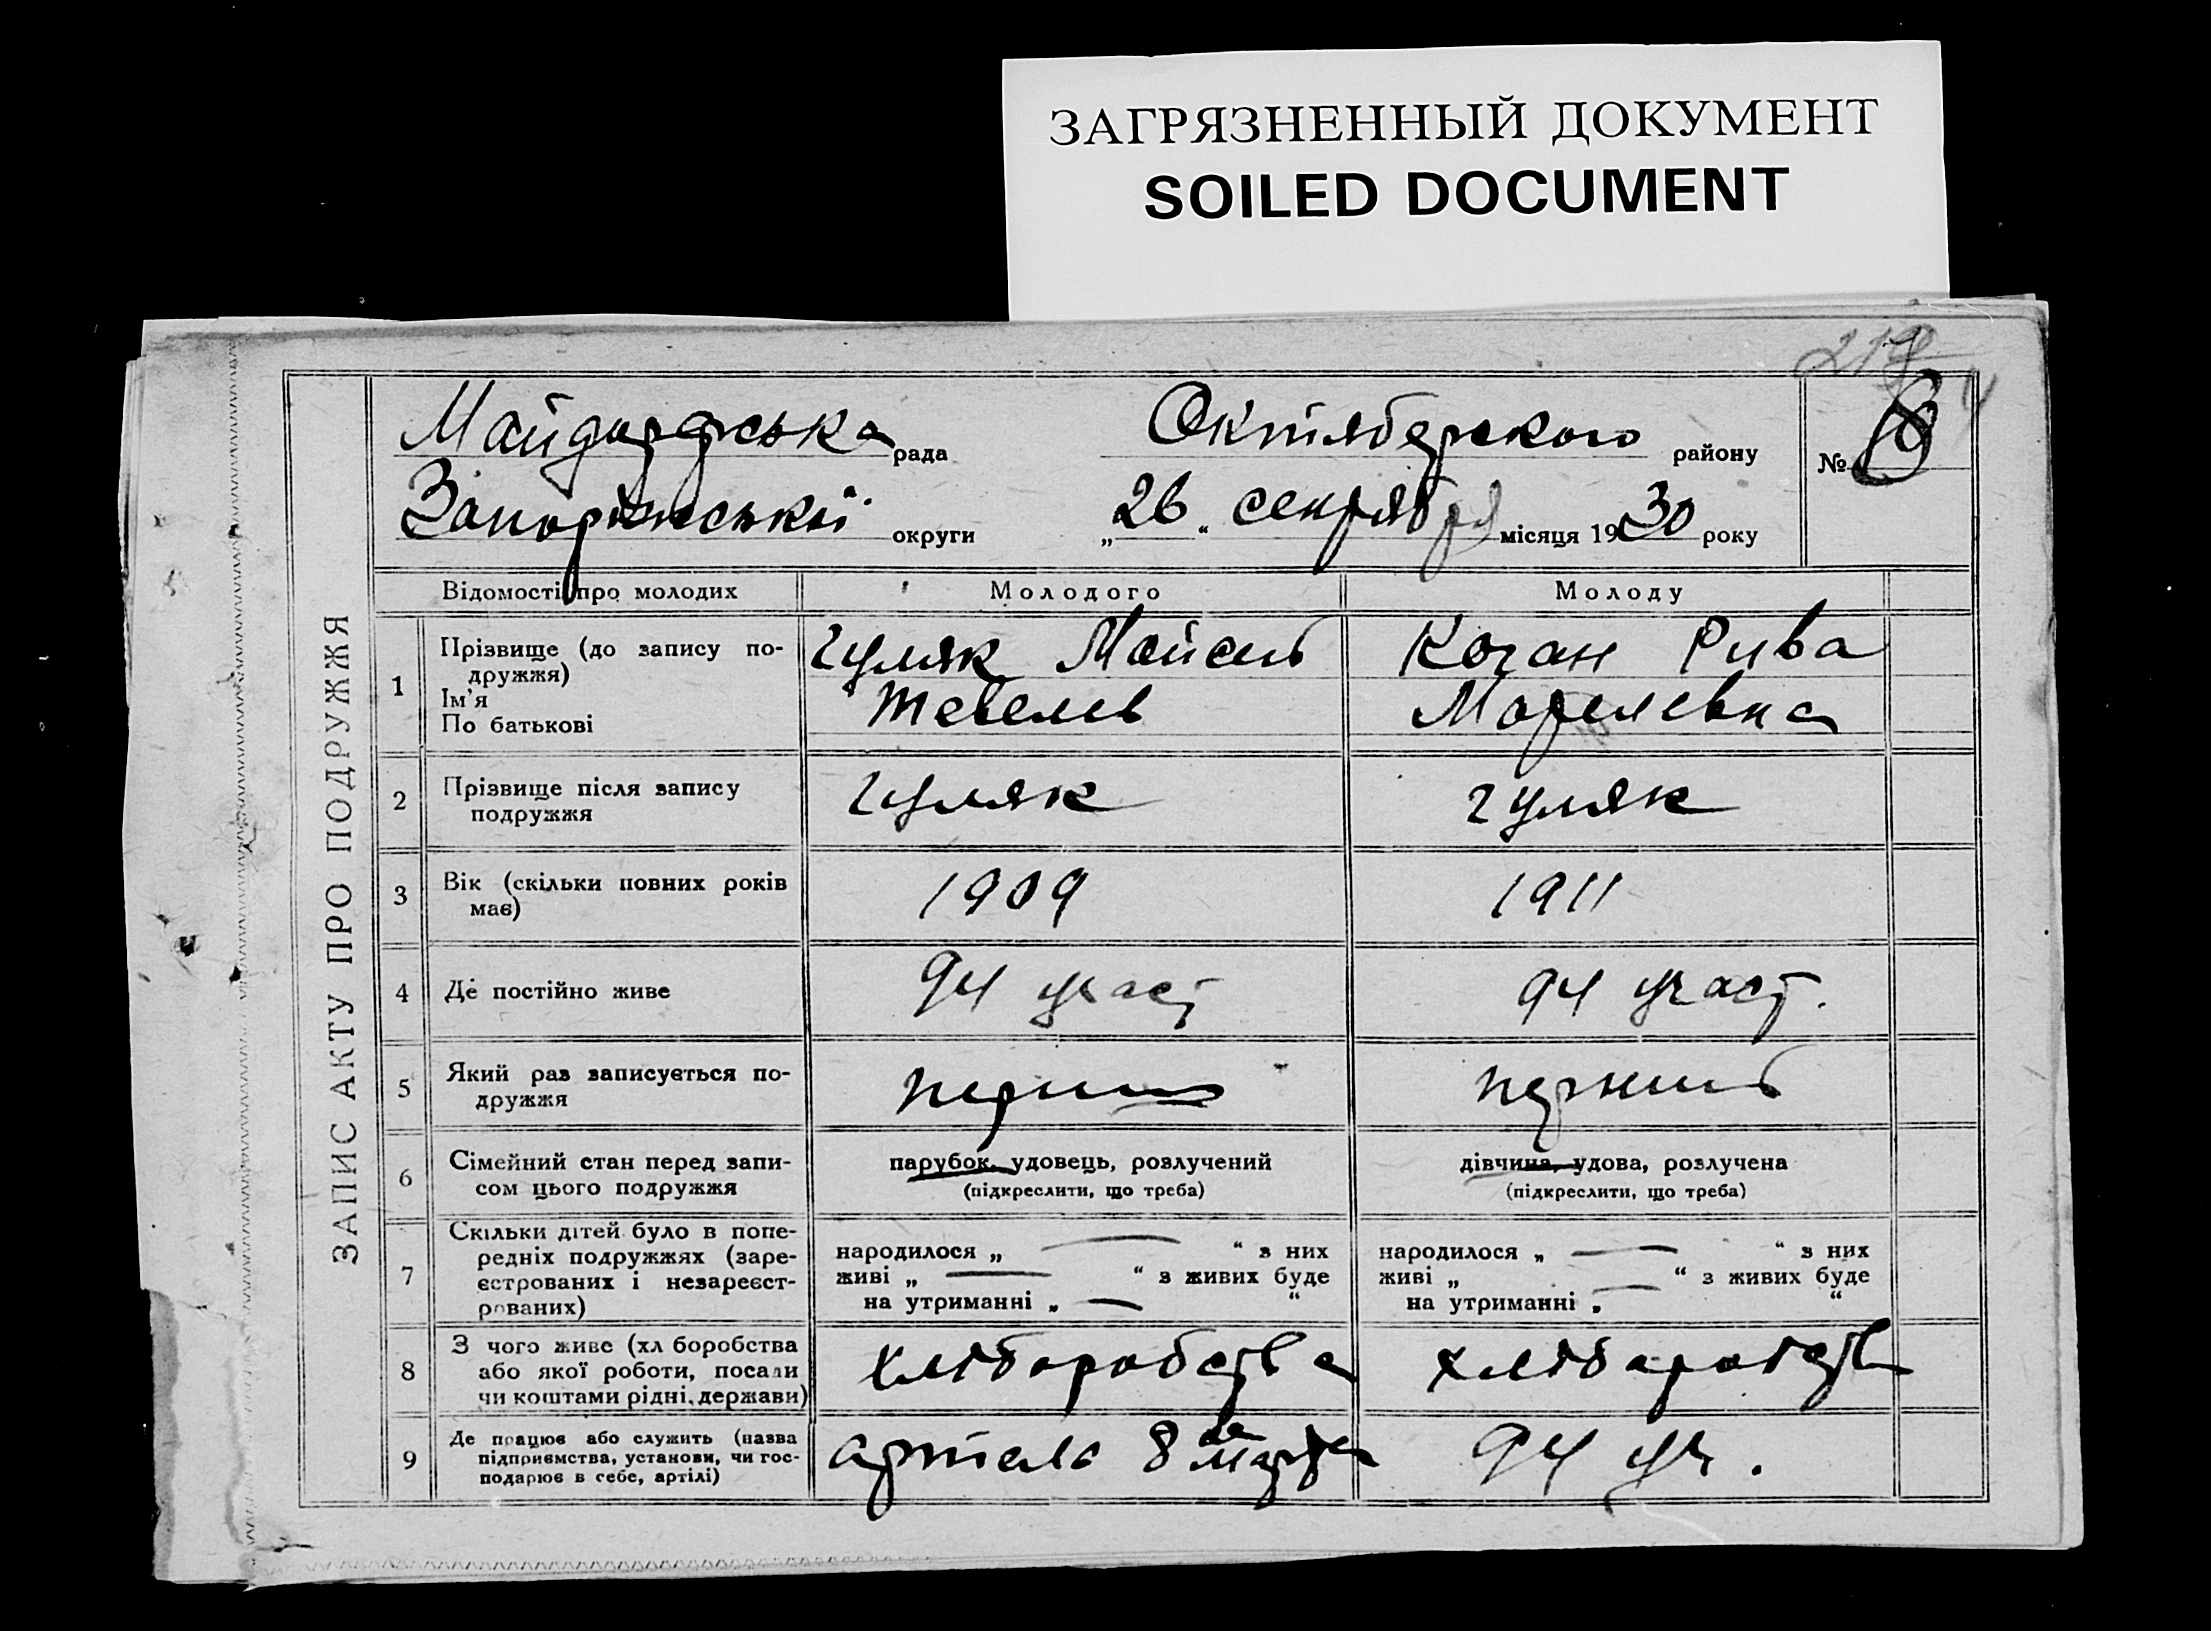 ЗАГРЯЗНЕННЫЙ ДОКУМЕНТ
SOILED DOCUMENT
ЗАПИС АКТУ ПРО ПОДРУЖЖЯ
рада Октяберского району №
Запоріжської округи „26“ сентября місяця 1930 року
Відомості про молодих Молодого Молоду
1 Прізвище (до запису по-
дружжя)
Ім'я
По батькові
Гуляк Мойсей
Тевелев
Коган Рива
2 Прізвище після запису
подружжя
Гуляк Гуляк
3 Вік (скільки повних років
має)
1909 1911
4 Де постійно живе 94 участ 94 участ.
5 Який раз записується по-
дружжя
перший перший
6 Сімейний стан перед запи-
сом цього подружжя
парубок, удовець, розлучений
(підкреслити, що треба)
дівчина, удова, розлучена
(підкреслити, що треба)
7 Скільки дітей було в попе-
редніх подружжях (заре-
єстрованих і незареєст-
рованих)
народилося „ — “ з них
живі „ — “ з живих буде
на утриманні „ — “
народилося „ — “ з них
живі „ — “ з живих буде
на утриманні „ “
8 З чого живе (хл боробства
або якої роботи, посади
чи коштами рідні, держави)
хліборобства хліборобств
9 Де працює або служить (назва
підприємства, установи, чи гос-
подарює в себе, артілі)
артель 8 марта 94 уч.